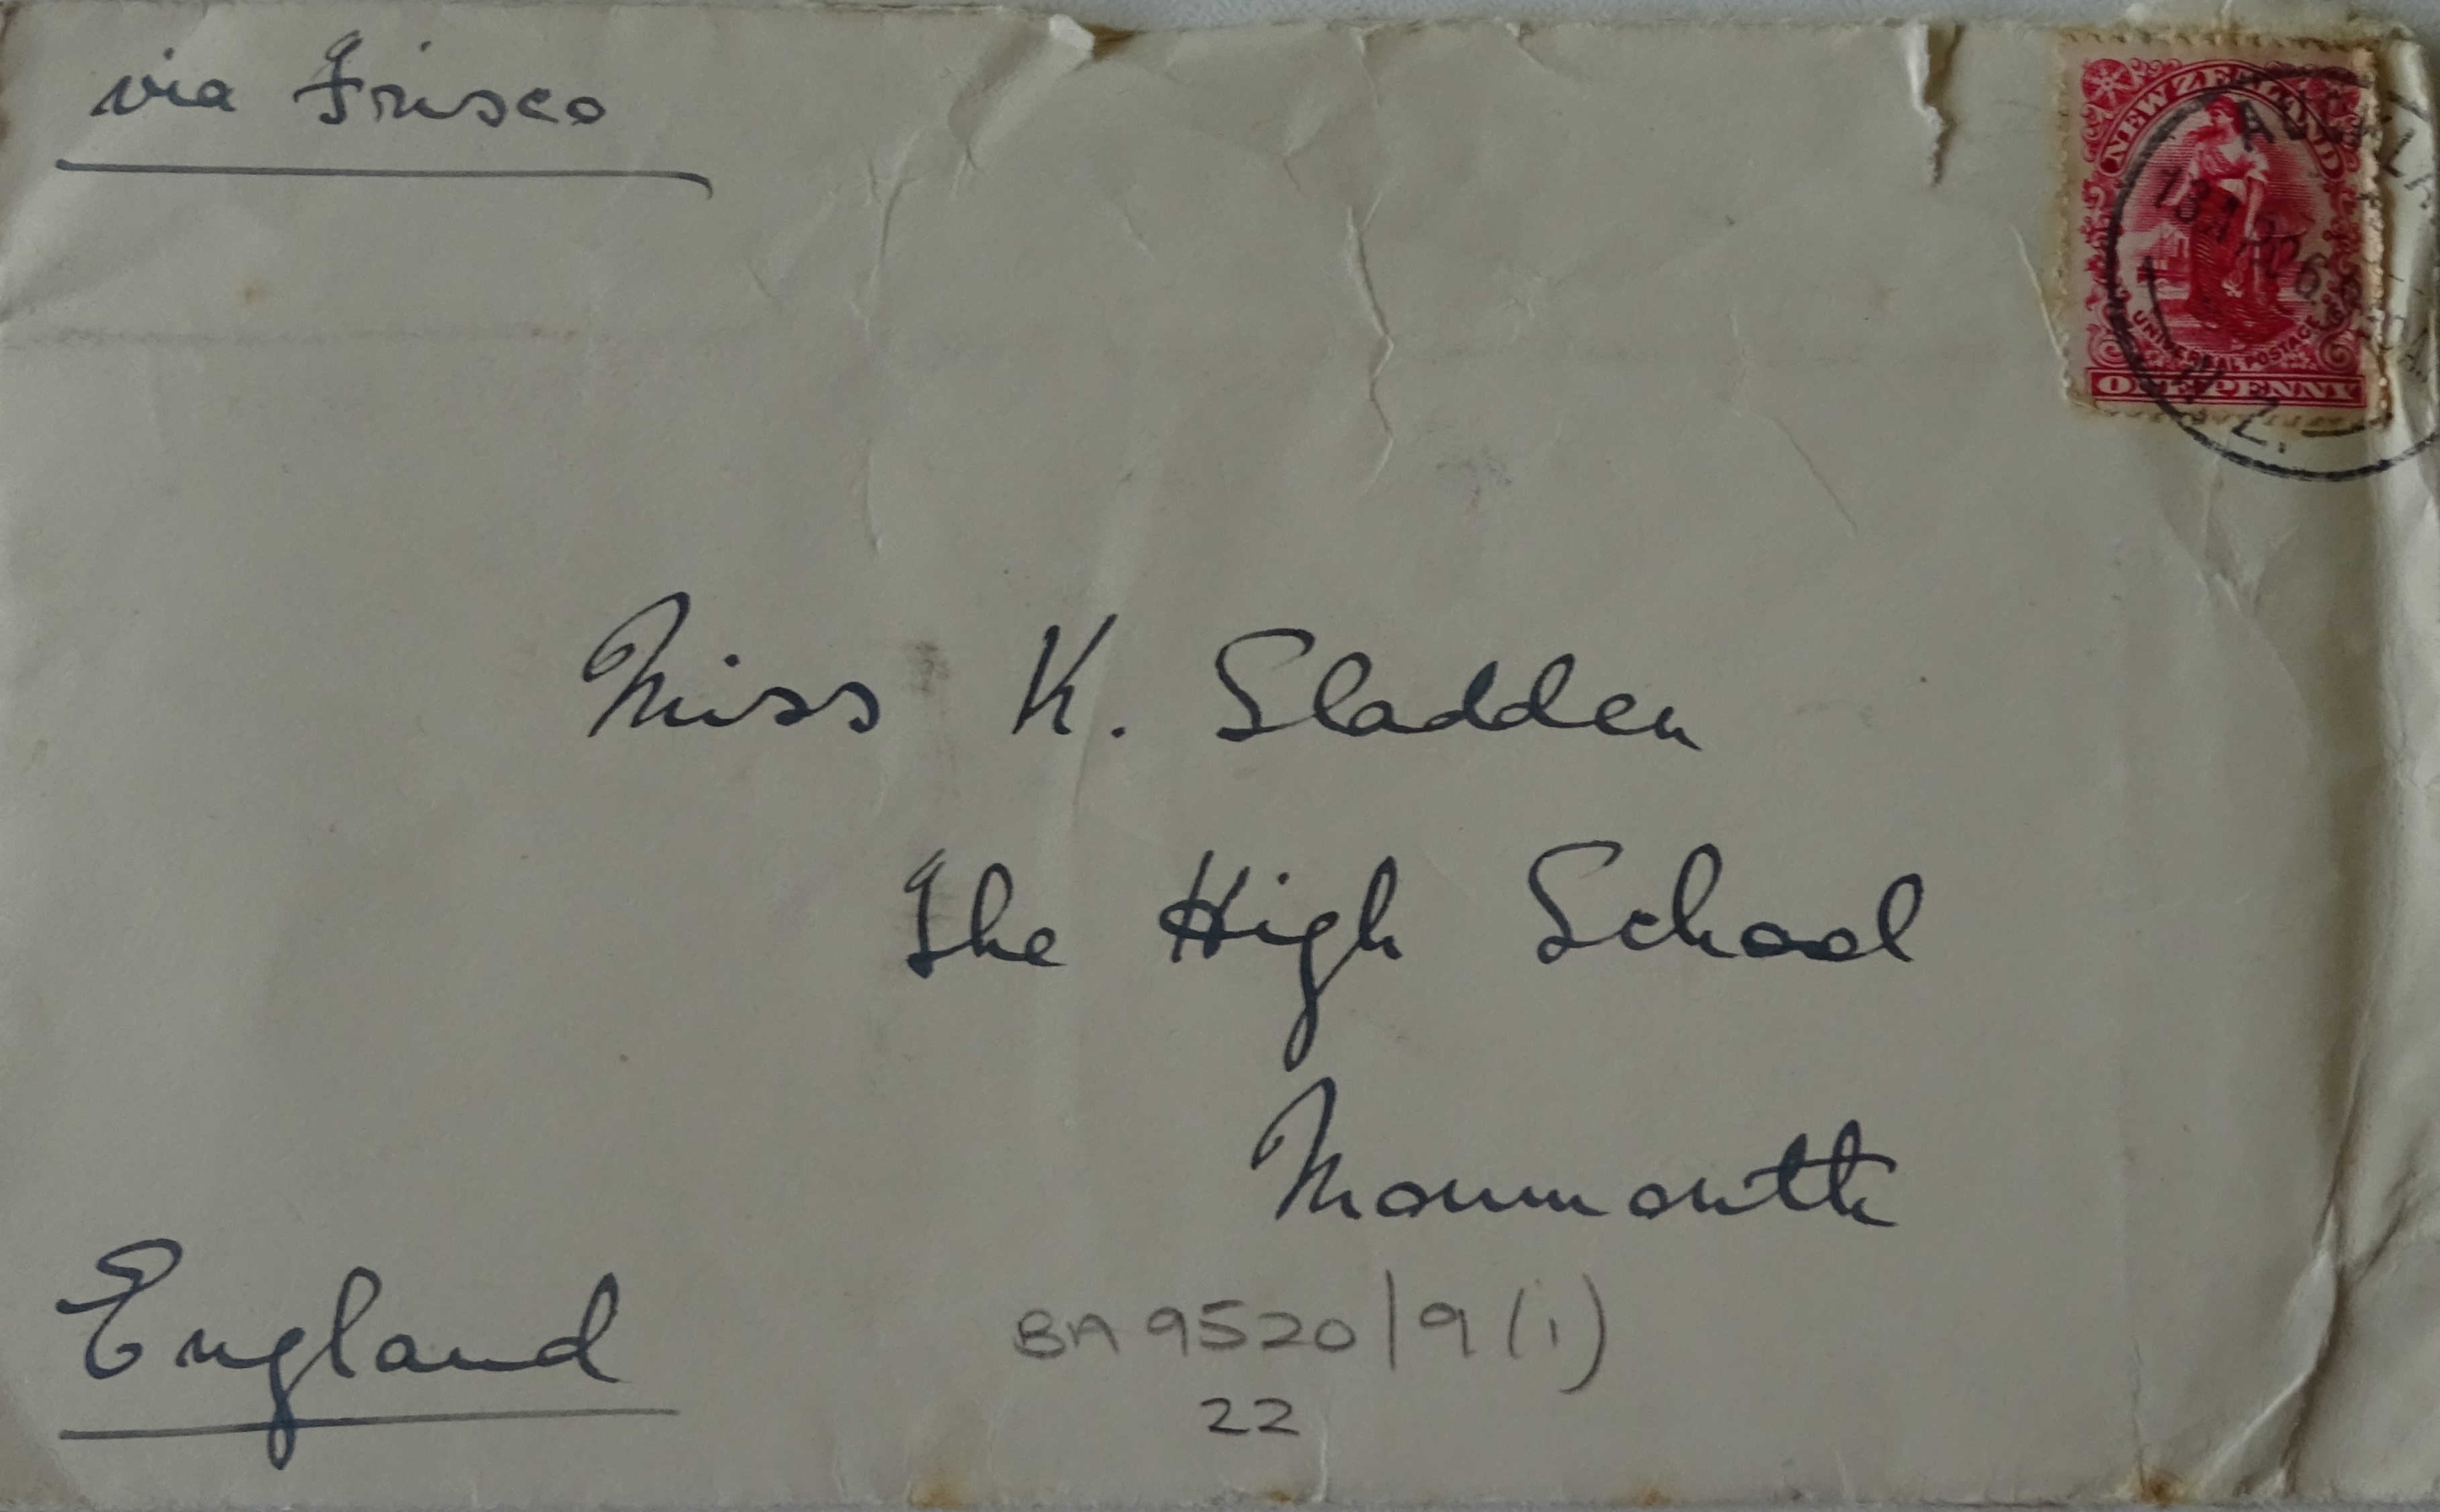 via Frisco
NEW ZEALAND
13 AP 06
UNIVERSAL POSTAGE
ONE PENNY
N.Z.
Miss K. Sladden
The High School
Monmouth
England
BA 9520/9(i)
22